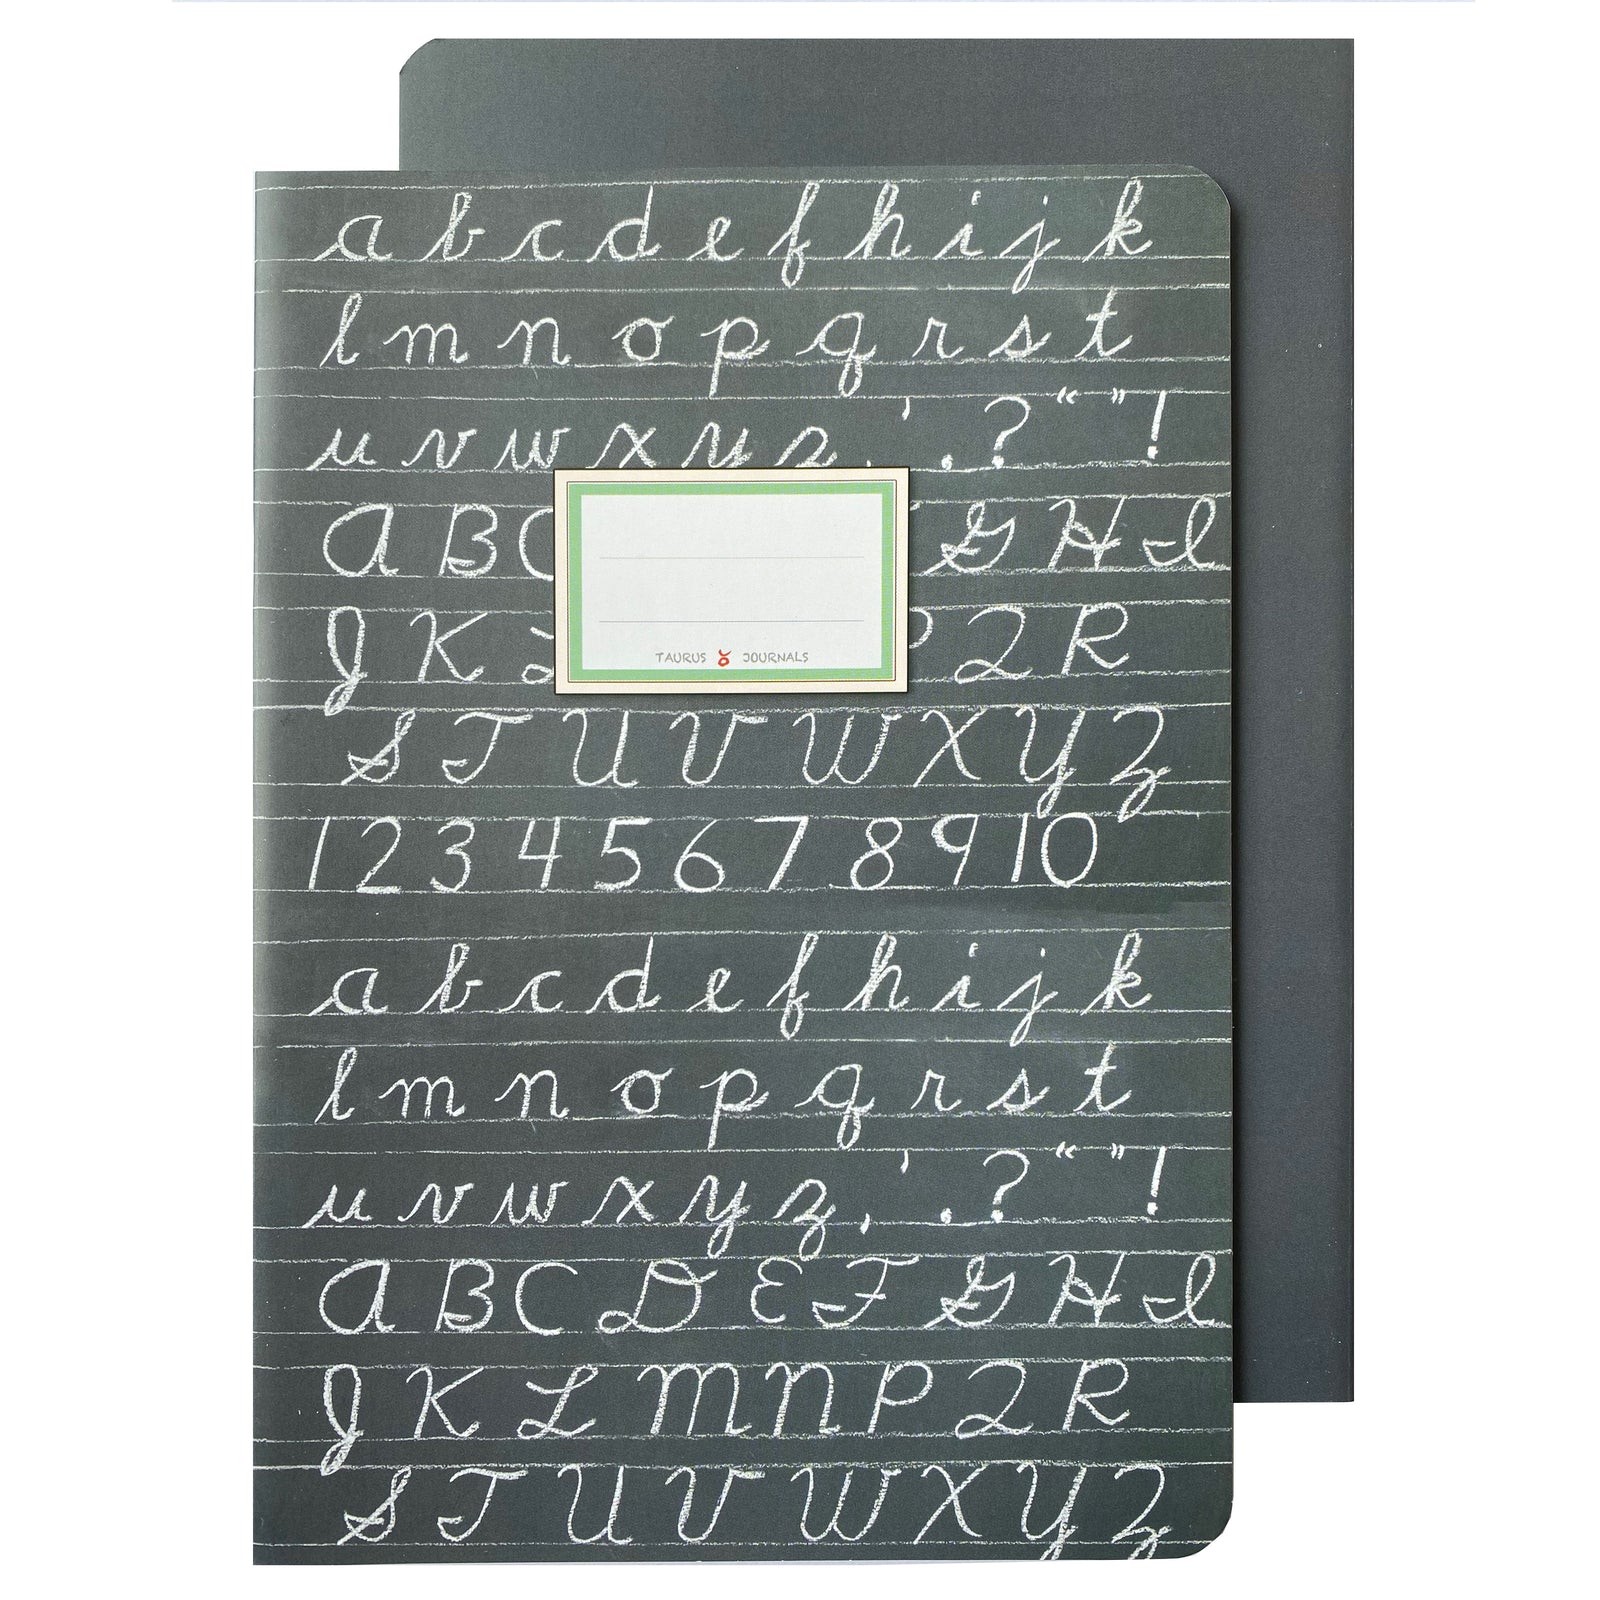 a b c d e f h i j k
l m n o p q r s t
u v w x y z , ' . ? “ ” !
A B C G H I
J K Q R
TAURUS JOURNALS
S T U V W X Y Z
1 2 3 4 5 6 7 8 9 10
a b c d e f h i j k
l m n o p q r s t
u v w x y z , ' . ? “ ” !
A B C D E F G H I
J K L M N P Q R
S T U V W X Y Z